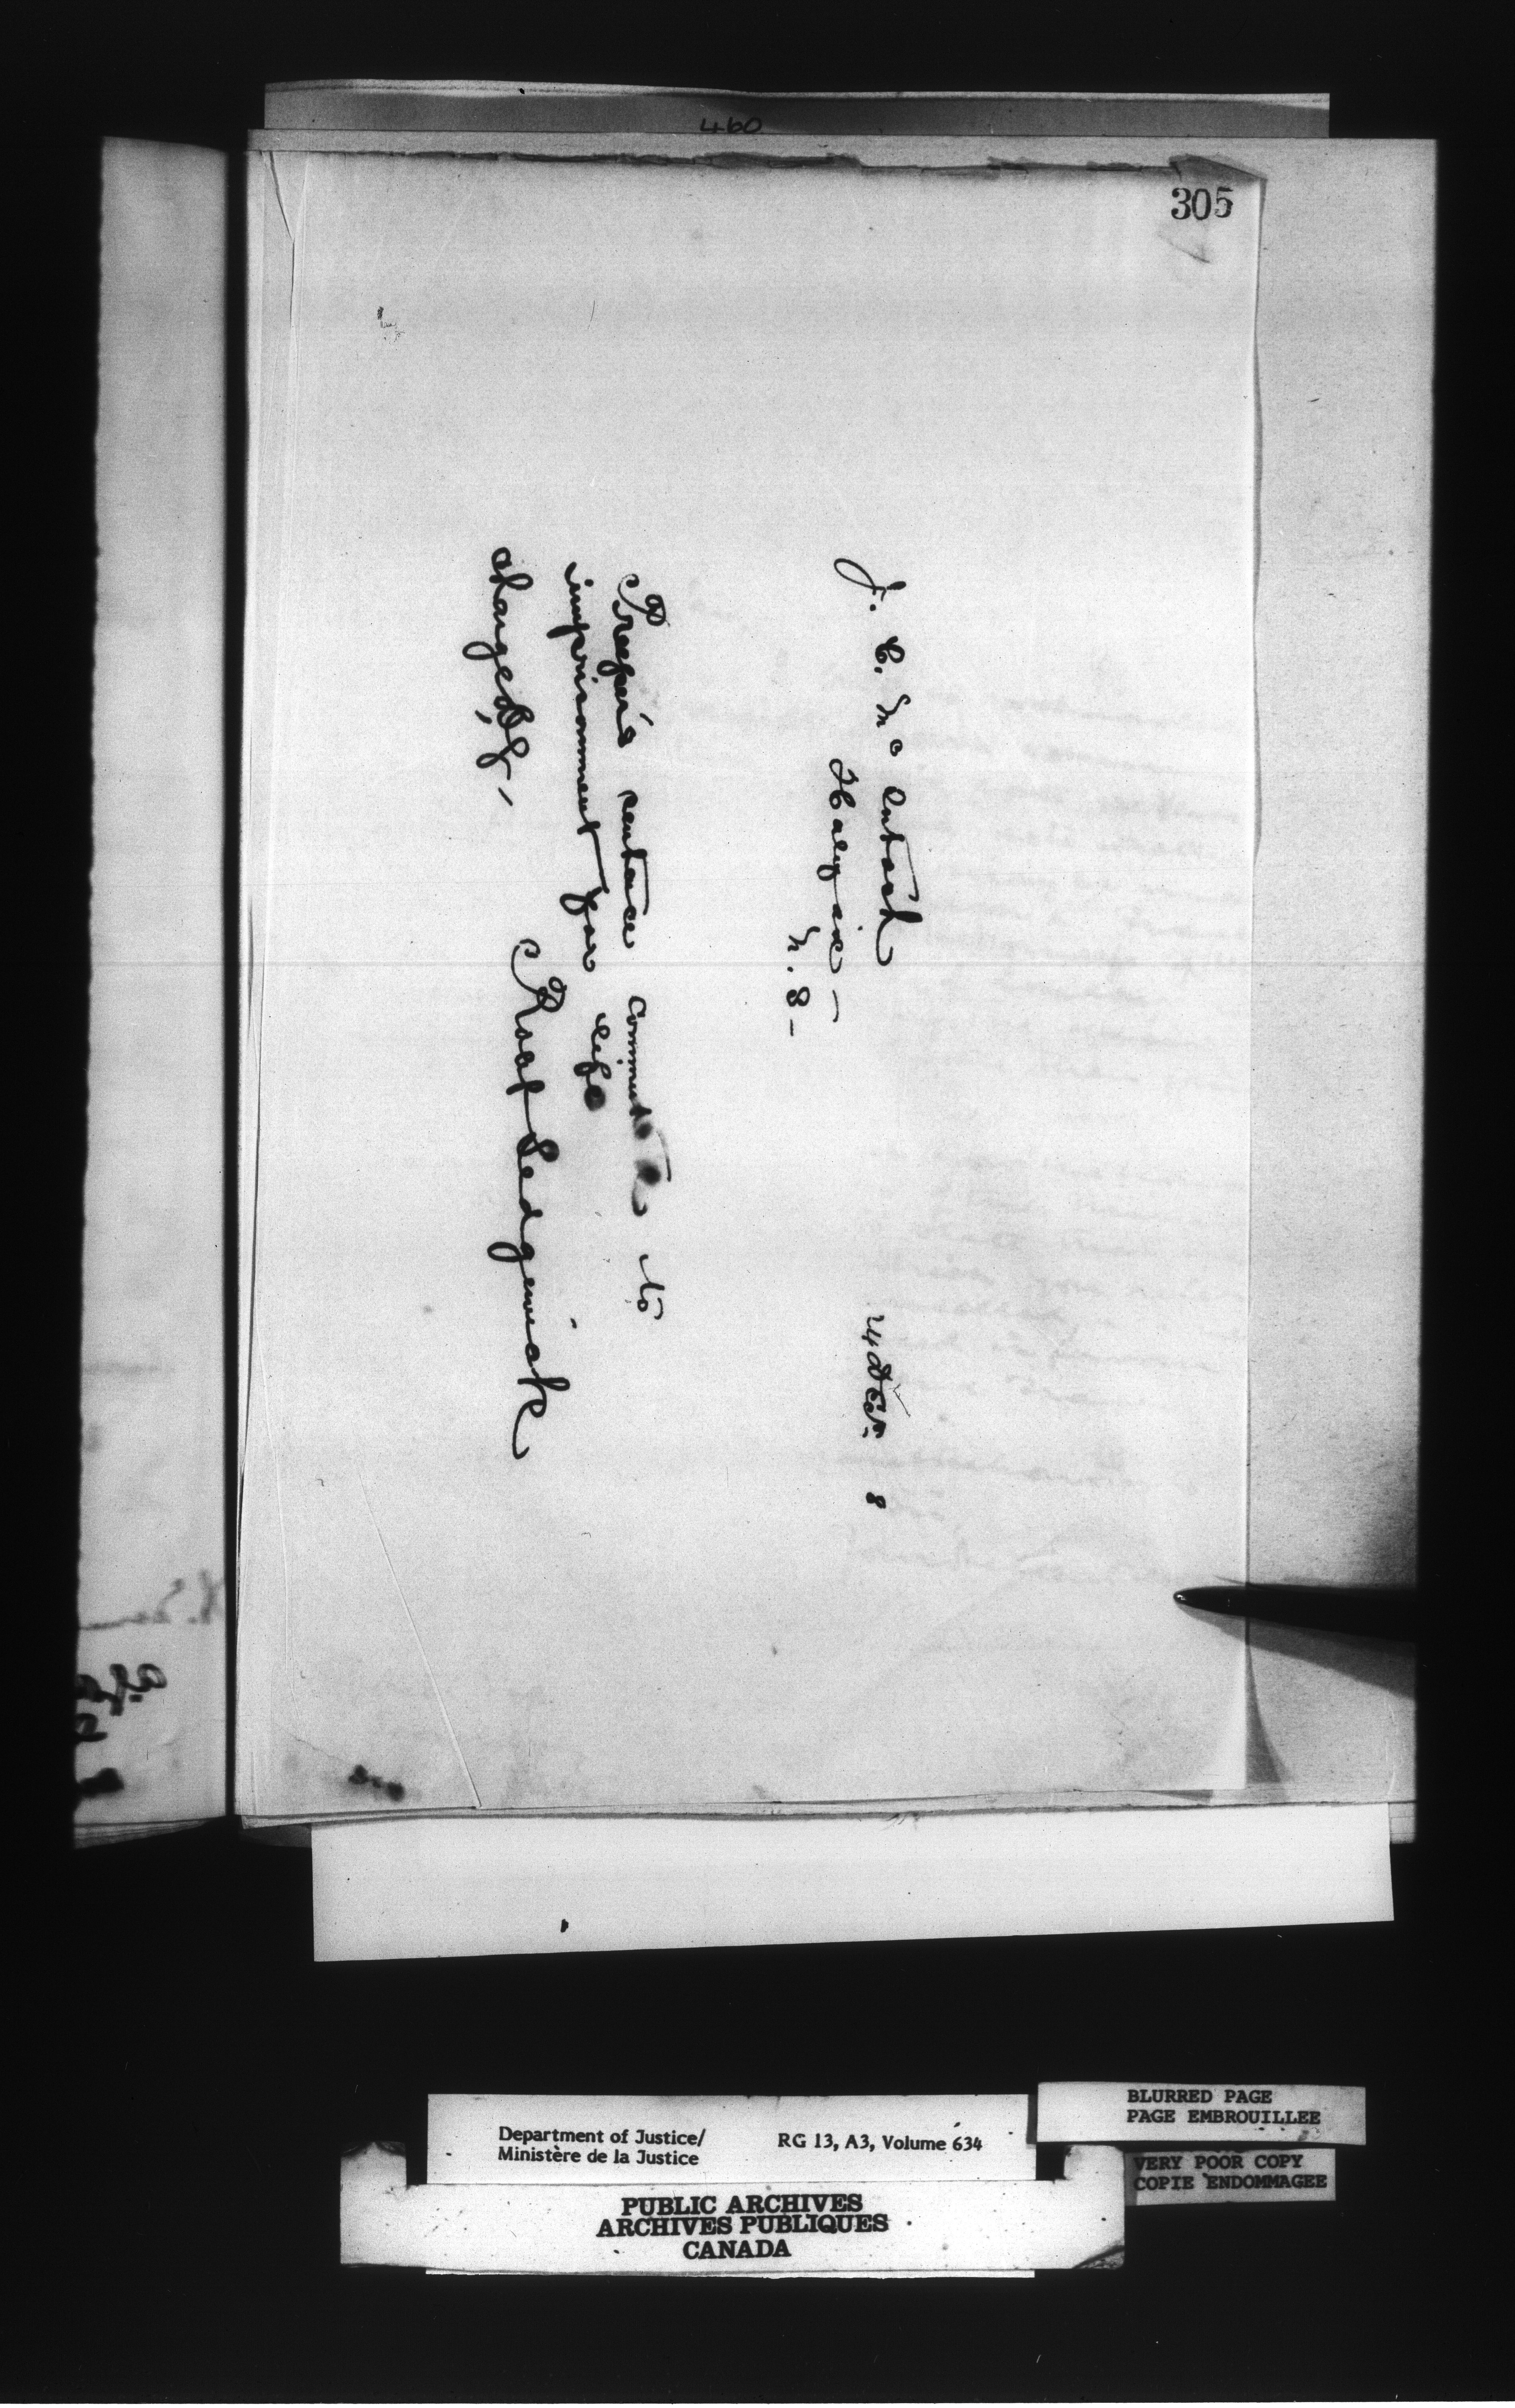 460
305
24 Dec. 8
J. C. McIntosh
Halifax —
N. S —
Preeper's sentence commuted to
imprisonment for life
Robt Sedgewick
charge DJ, —
Department of Justice/
Ministère de la Justice
RG 13, A3, Volume 634
BLURRED PAGE
PAGE EMBROUILLEE
VERY POOR COPY
COPIE ENDOMMAGEE
PUBLIC ARCHIVES
ARCHIVES PUBLIQUES
CANADA